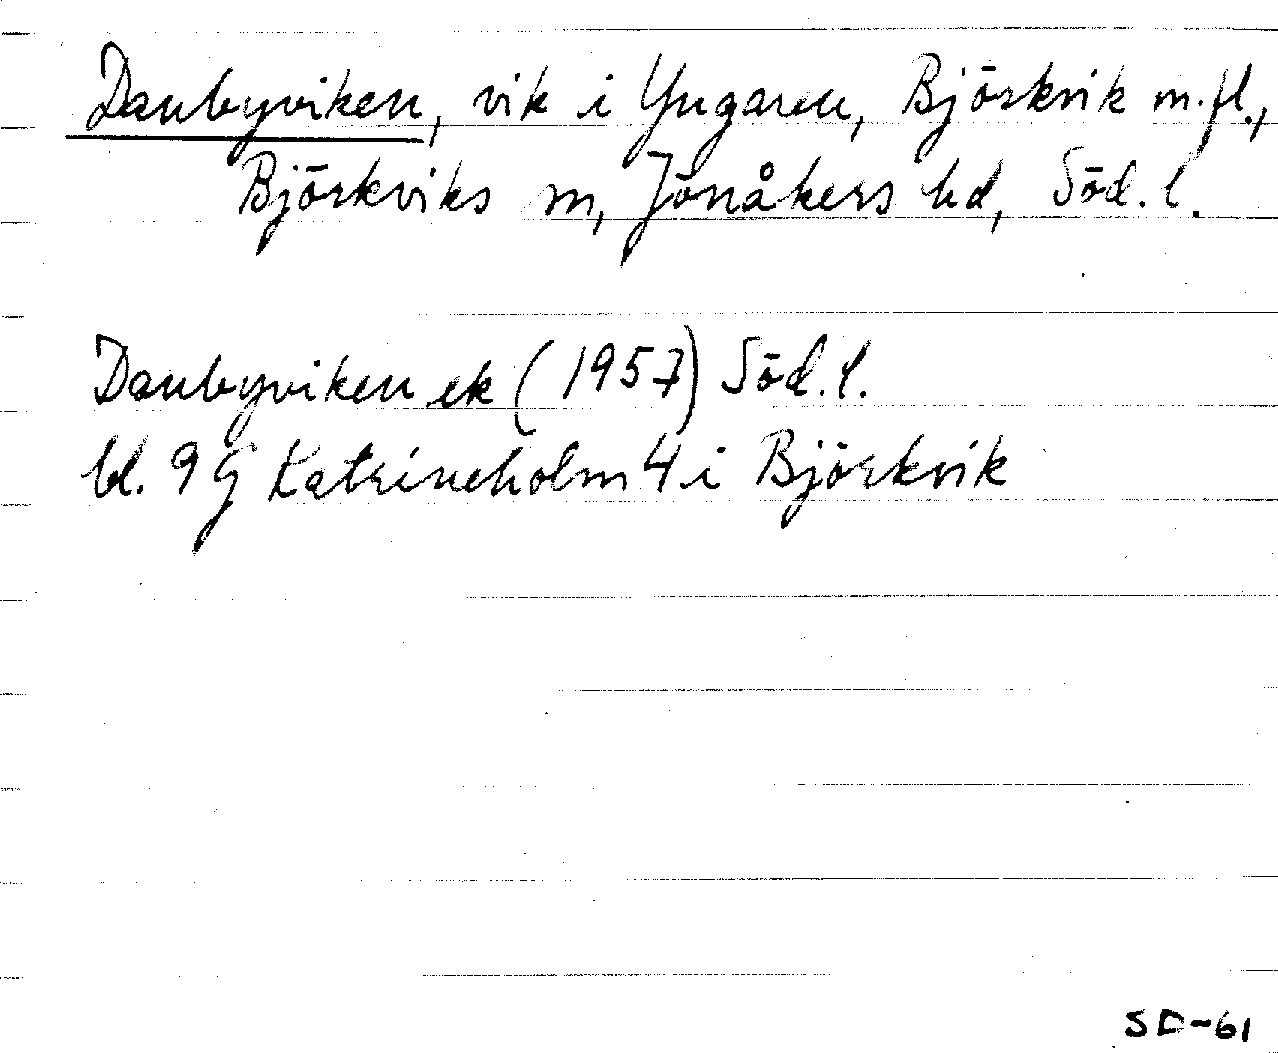 Danbyviken, vik i Yngaren, Björkvik m.fl.,
Björkviks sn, Jönåkers hd, Söd. l.
Danbyviken ek (1957) Söd. l.
bl. 9 G Katrineholm 4 i Björkvik
SD-61